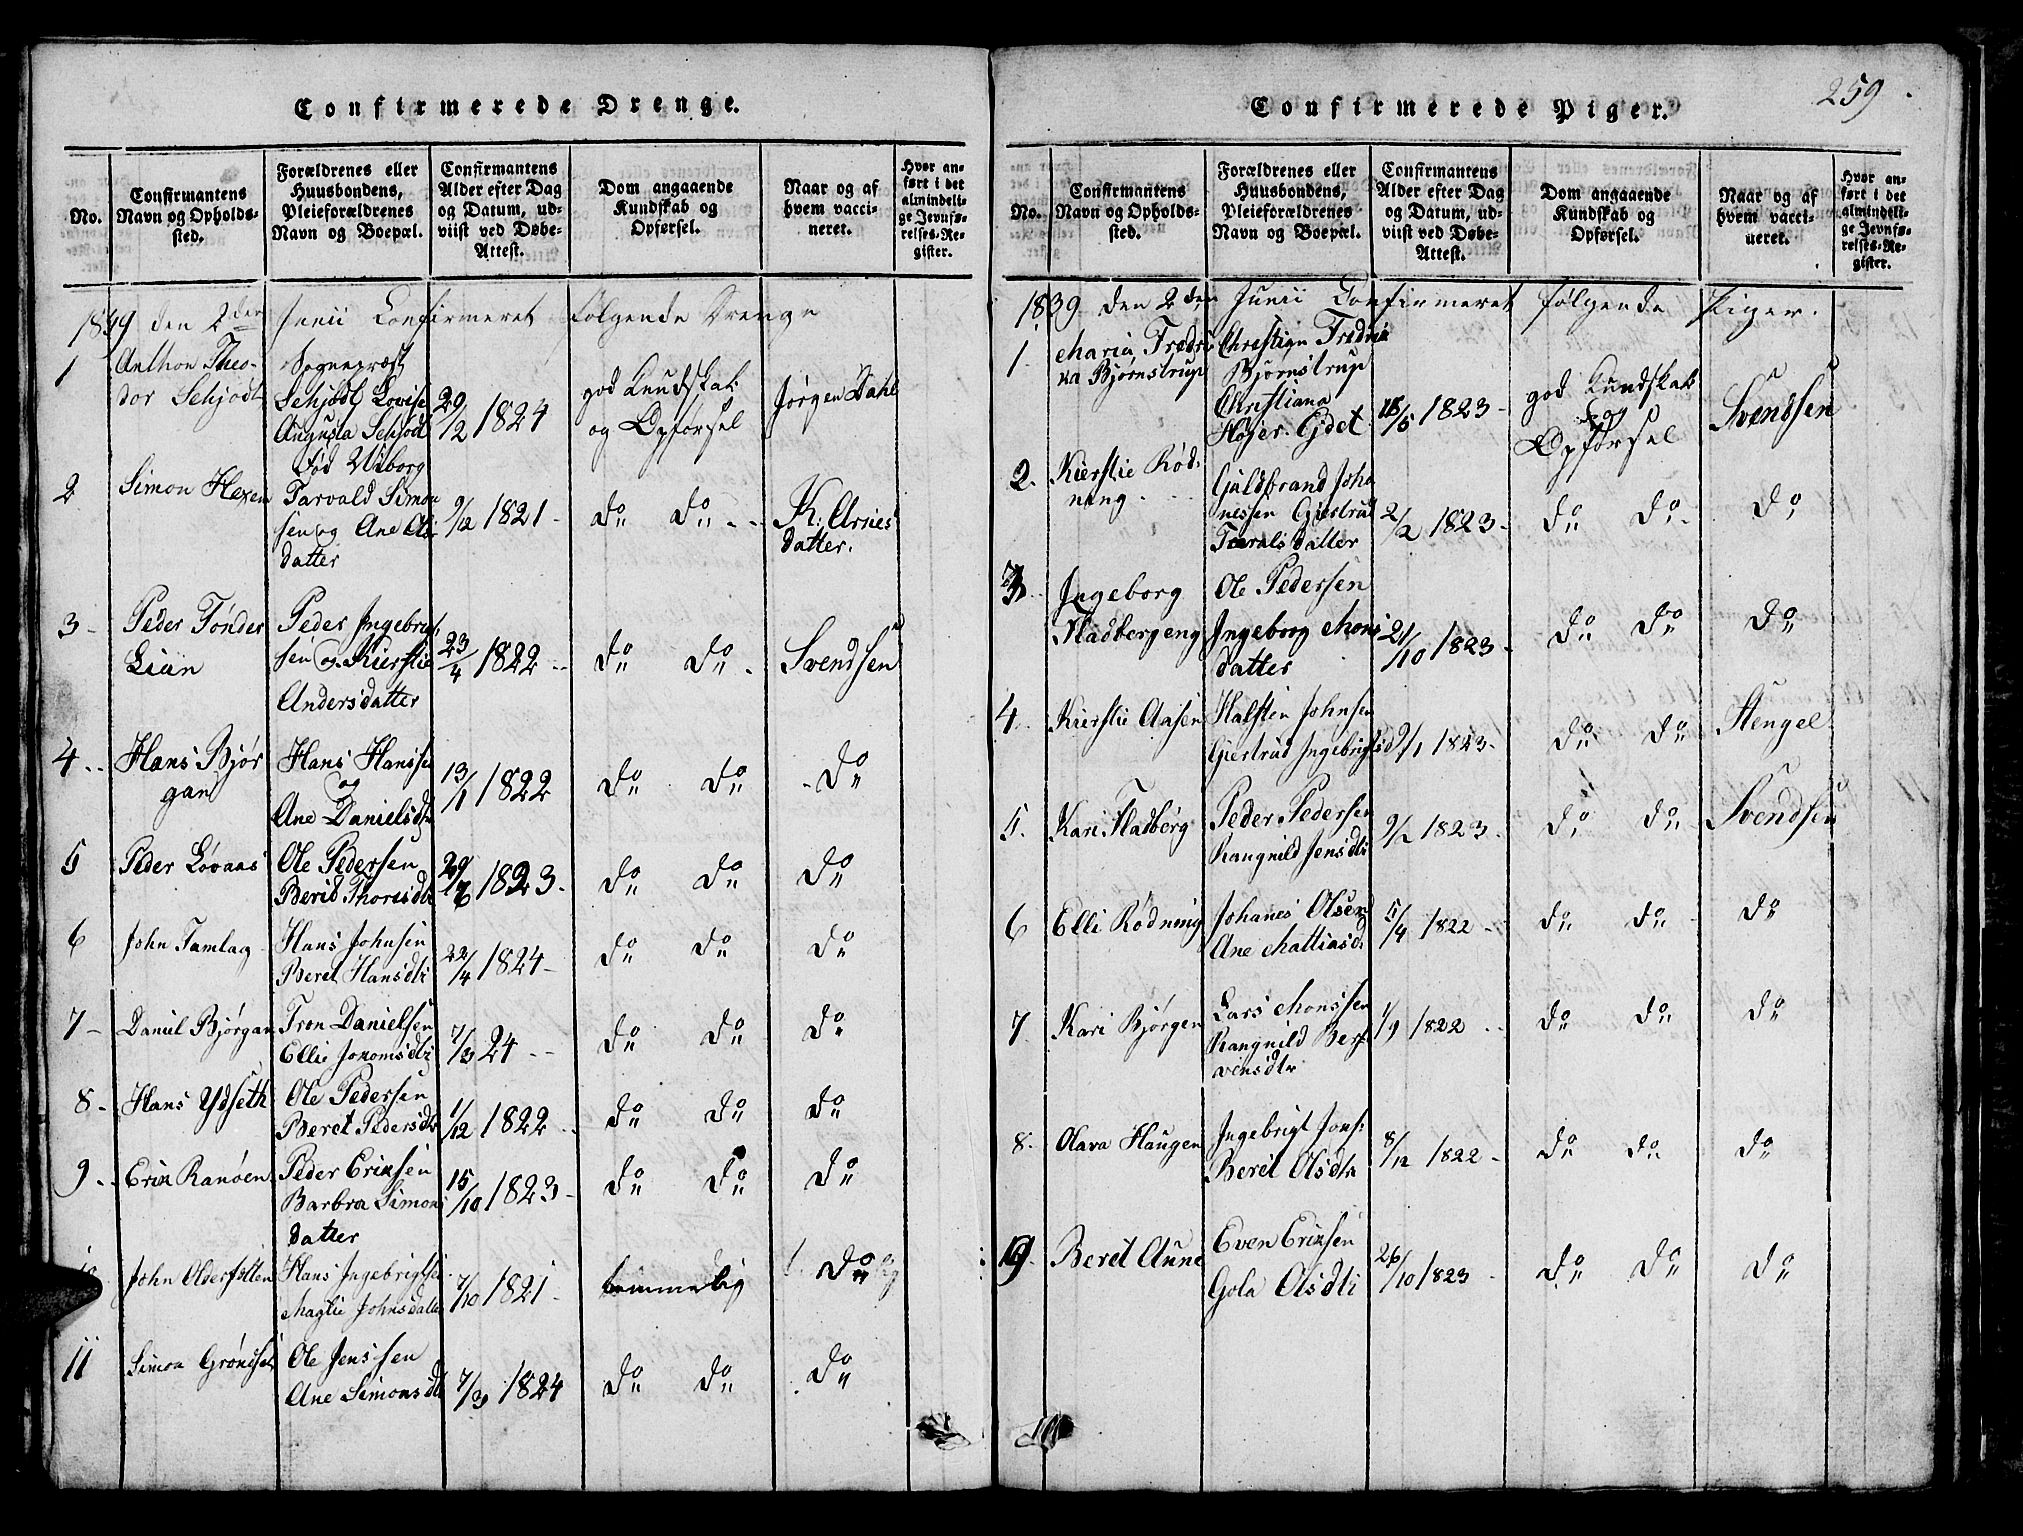 259
Confirmerede Drenge.
No.
Confirmantens Navn og Opholds-sted.
Forældrenes eller Huusbondens, Pleieforældrenes Navn og Boepæl.
Confirmantens Alder efter Dag og Datum, ud-viist ved Døbe-Attest.
Dom angaaende Kundskab og Opførsel.
Naar og af hvem vacci-neret.
Hvor an-ført i det almindeli-ge Jevnfø-relses-Re-gister.
1839 den 2den Junii Confirmeret følgende Drenge
1 Anthon Theo-
dor Schjødt
Sognepræst
Schjødt Lovise
Augusta Schjødt
Fød Wiborg
29/2 1824
god Kundskab
og Opførsel
Jørgen Dahl
2 Simon Hexem
Tarvald Simon
sen og Ane Ols
datter
9/2 1821
do do
K. Arnes
datter.
3 Peder Tønder
Lian
Peder Ingebrigt
sen og Kierstie
Andersdatter
23/4 1822
do do
Svendsen
4 Hans Bjør
gan
Hans Hansen
og
Ane Danielsdtr
13/1 1822
do do do
5 Peder Løvaas
Ole Pedersen
Berit Thorisdtr
29/6 1823
do do do
6 John Tamlag
Hans Johnsen
Beret Hansdtr
22/4 1824
do do do
7 Daniel Bjørgan
Tron Danielsen
Ellie Jonomsdtr
7/3 24
do do do
8 Hans Ydseth
Ole Pedersen
Beret Pedersdtr
1/12 1822
do do do
9 Erik Ranøen
Peder Eriksen
Barbra Simons
datter
15/10 1823
do do do
10 John Oldertrøen
Hans Ingebrigtsen
Magtie Johnsdatter
7/10 1821
temmelig
do
11 Simon Grønset
Ole Jenssen
Ane Simonsdtr
7/3 1824
do do do
Confirmerede Piger.
No.
Confirmantens Navn og Opholds-sted.
Forældrenes eller Huusbondens, Pleieforældrenes Navn og Boepæl.
Confirmantens Alder efter Dag og Datum, ud-viist ved Døbe-Attest.
Dom angaaende Kundskab og Opførsel.
Naar og af hvem vacci-neret.
Hvor an-ført i det almindeli-ge Jevnfø-relses-Re-gister.
1839 den 2den Junii Confirmeret følgende Piger.
1. Maria Fredri
ka Bjørnstrup
Christian Fredrik
Bjørnstrup
Christiana
Højer Gjdet
18/5 1823
god Kundskab
og
Opførsel
Svendsen
2. Kierstie Rød
ning
Guldbrand Joha
nessen Giertrud
Tarals datter
2/2 1823
do do do
3 Ingeborg
Fladbergeng
Ole Pedersen
Ingeborg Mons
datter
21/10 1823
do do do
4 Kierstie Aasen
Halsten Johnsen
Giertrud Ingebrigtsd
9/1 1823
do do
Stengel
5. Kari Fladberg
Peder Pedersen
Rangnild Jensdtr
9/2 1823
do do
Svendsen
6 Elli Rødning
Johanes Olsen
Ane Mattiasd.
5/4 1822
do do do
7 Kari Bjørgen
Lars Monssen
Rangnild Ber
vensdtr
1/9 1822
do do do
8. Olava Haugen
Ingebrigt Jons
Beret Olsdtr
8/12 1822
do do do
9. Beret Aune
Even Eriksen
Gola Olsdtr
26/10 1823
do do do
10